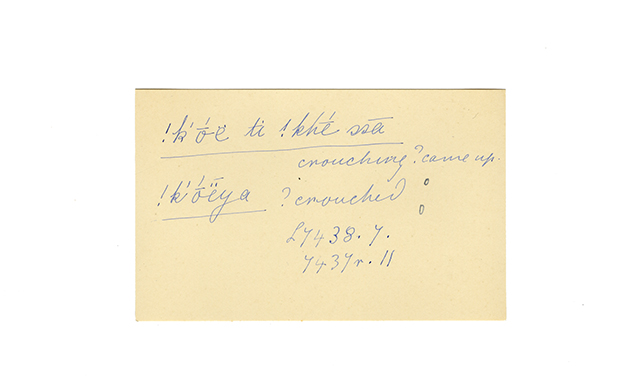 !k'óë ti !khé ssā
crouching ? came up.
!k'óëya ? crouched
L7438.7.
7437v.11